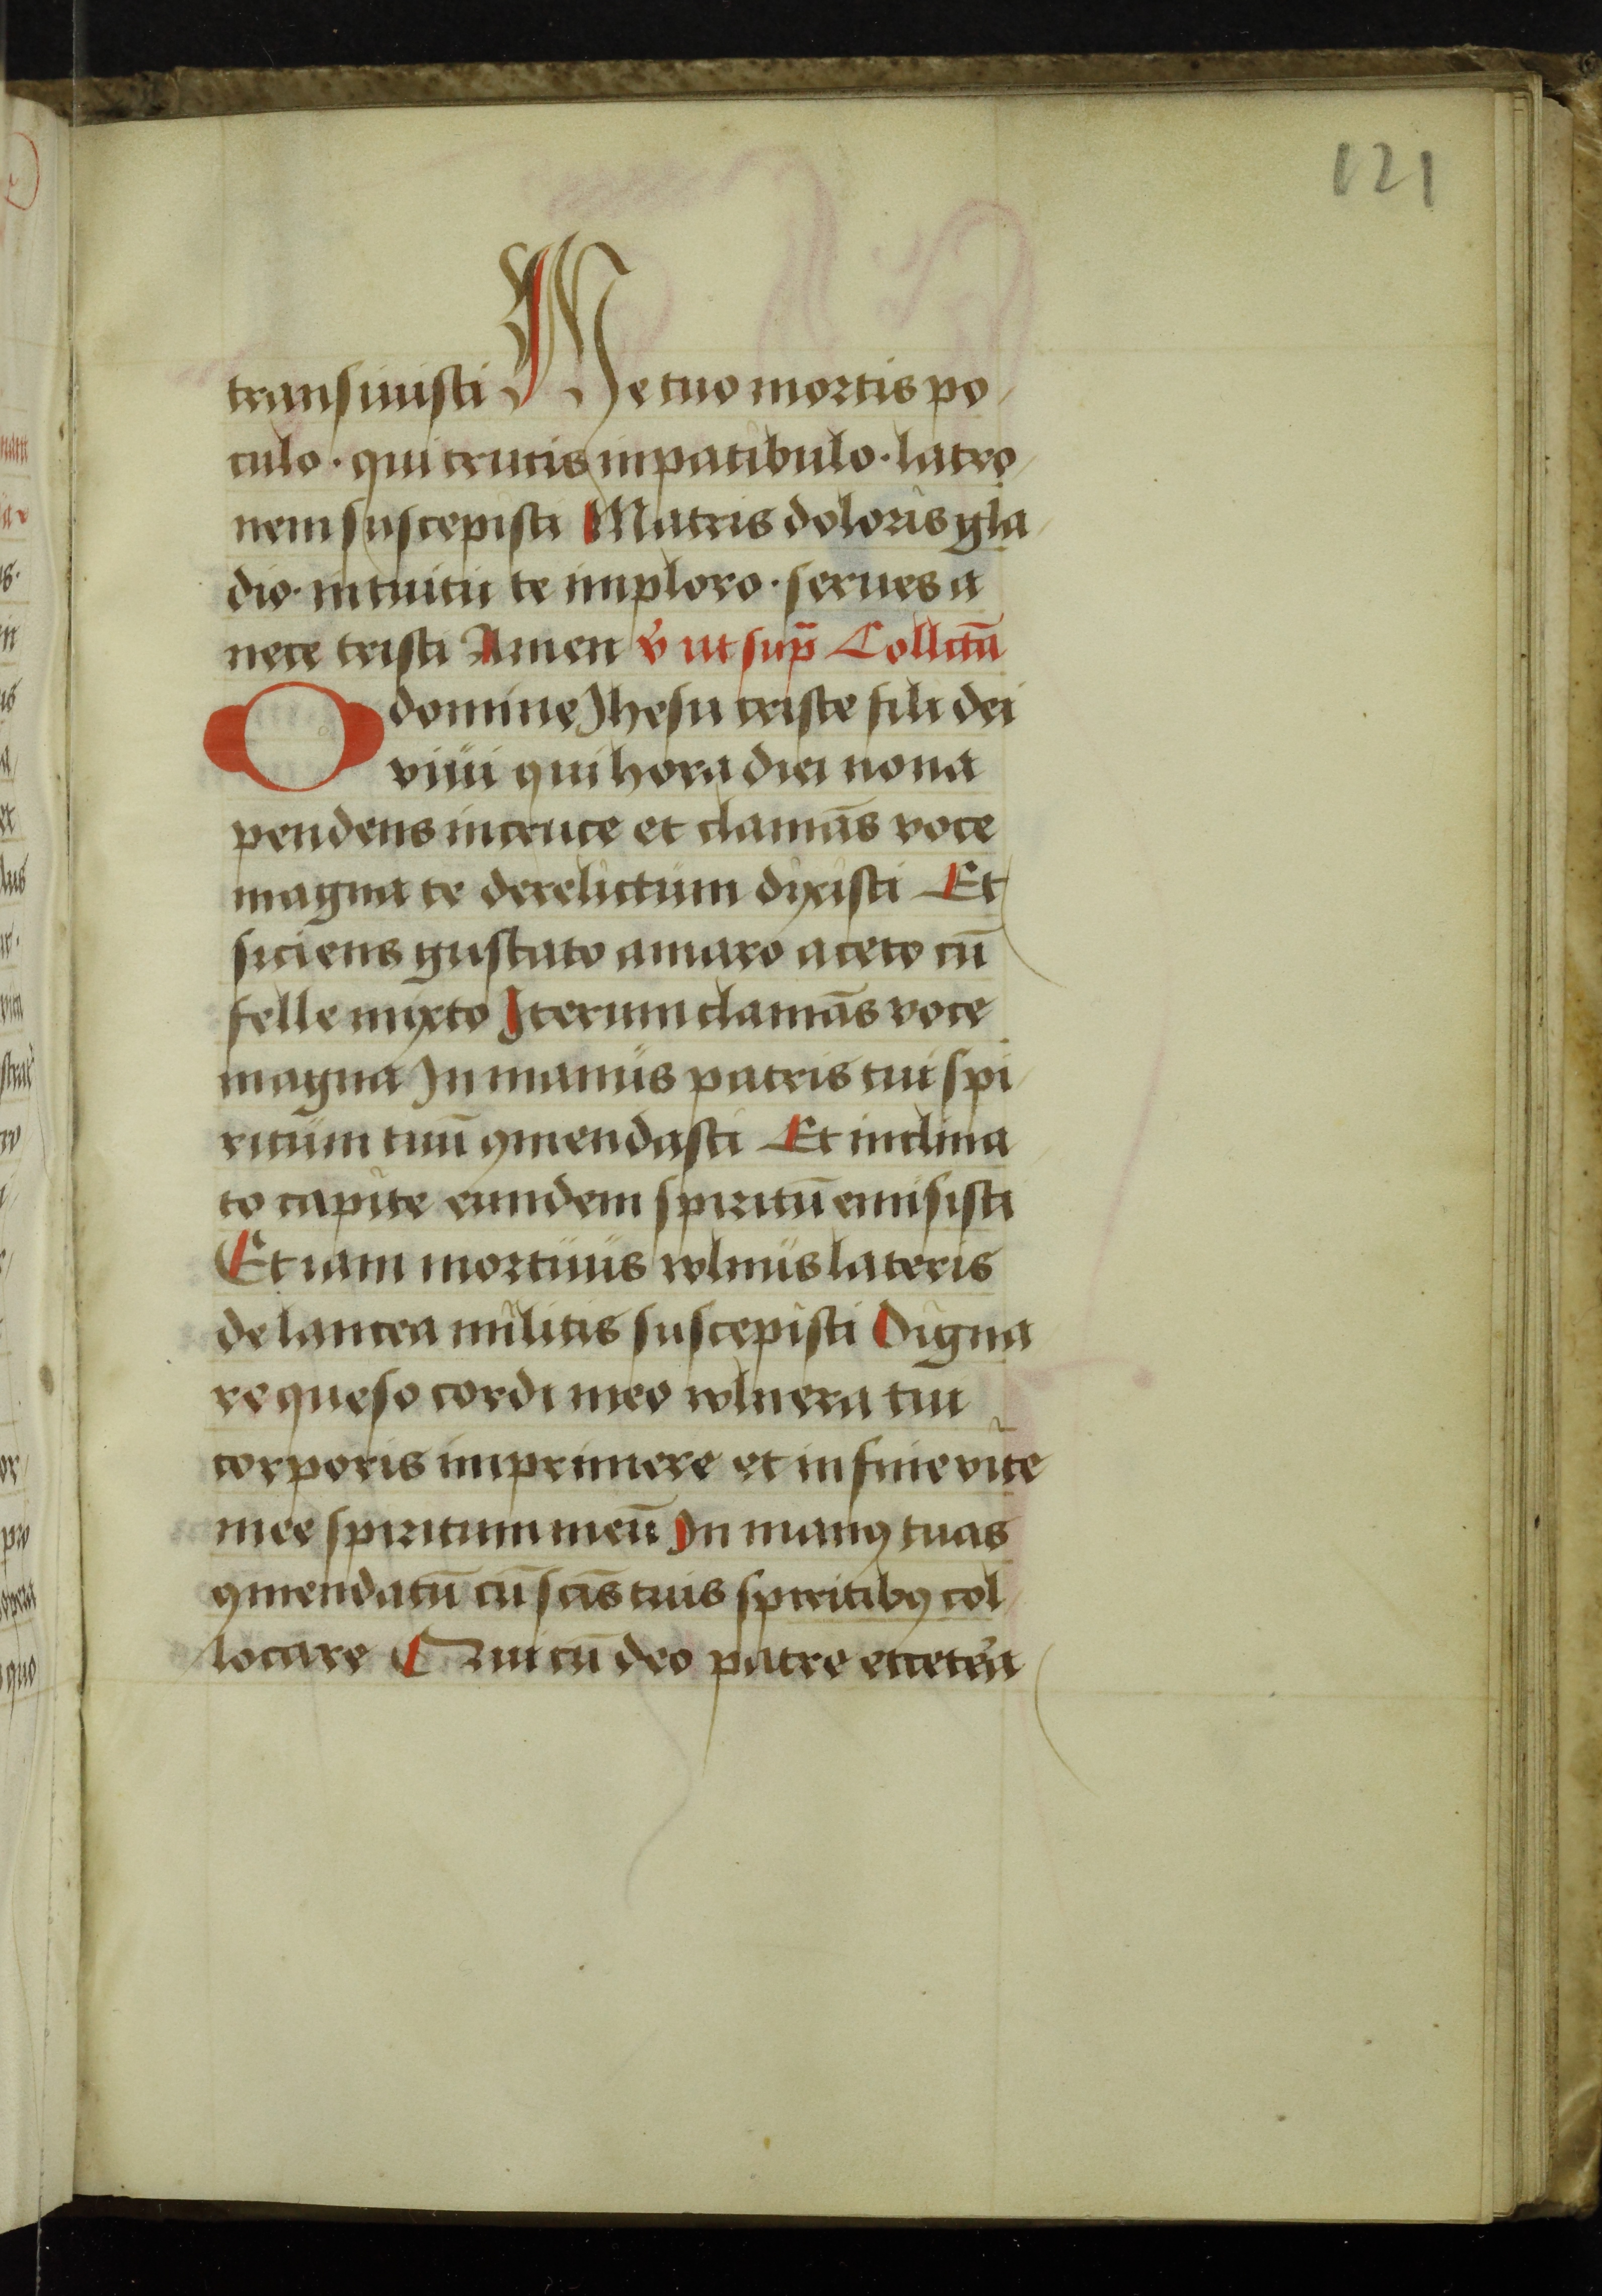 121
transiuisti Me tuo mortis po
culo · qui crucis in patibulo · latro
nem suscepisti Matris doloris gla
dio · intuitu te imploro · serues a
nece tristi Amen v̉ ut sup̄ Collctā
O domine Jhesu criste fili dei
viui qui hora diei nona
pendens in cruce et clamās voce
magna te derelictum dixisti Et
siciens gustato amaro aceto cū
felle mixto Iterum clamās voce
magna In manus patris tui spi
ritum tuū ꝯmendasti Et inclina
to capite eundem spiritū emisisti
Et iam mortuus wlnus lateris
de lancea militis suscepisti Digna
re queso cordi meo wlnera tui
corporis imprimere et in fine vite
mee spiritum meū In manꝰ tuas
ꝯmendatū cū sc̄is tuis spiritibꝰ col
locare Qui cū deo patre etcetera